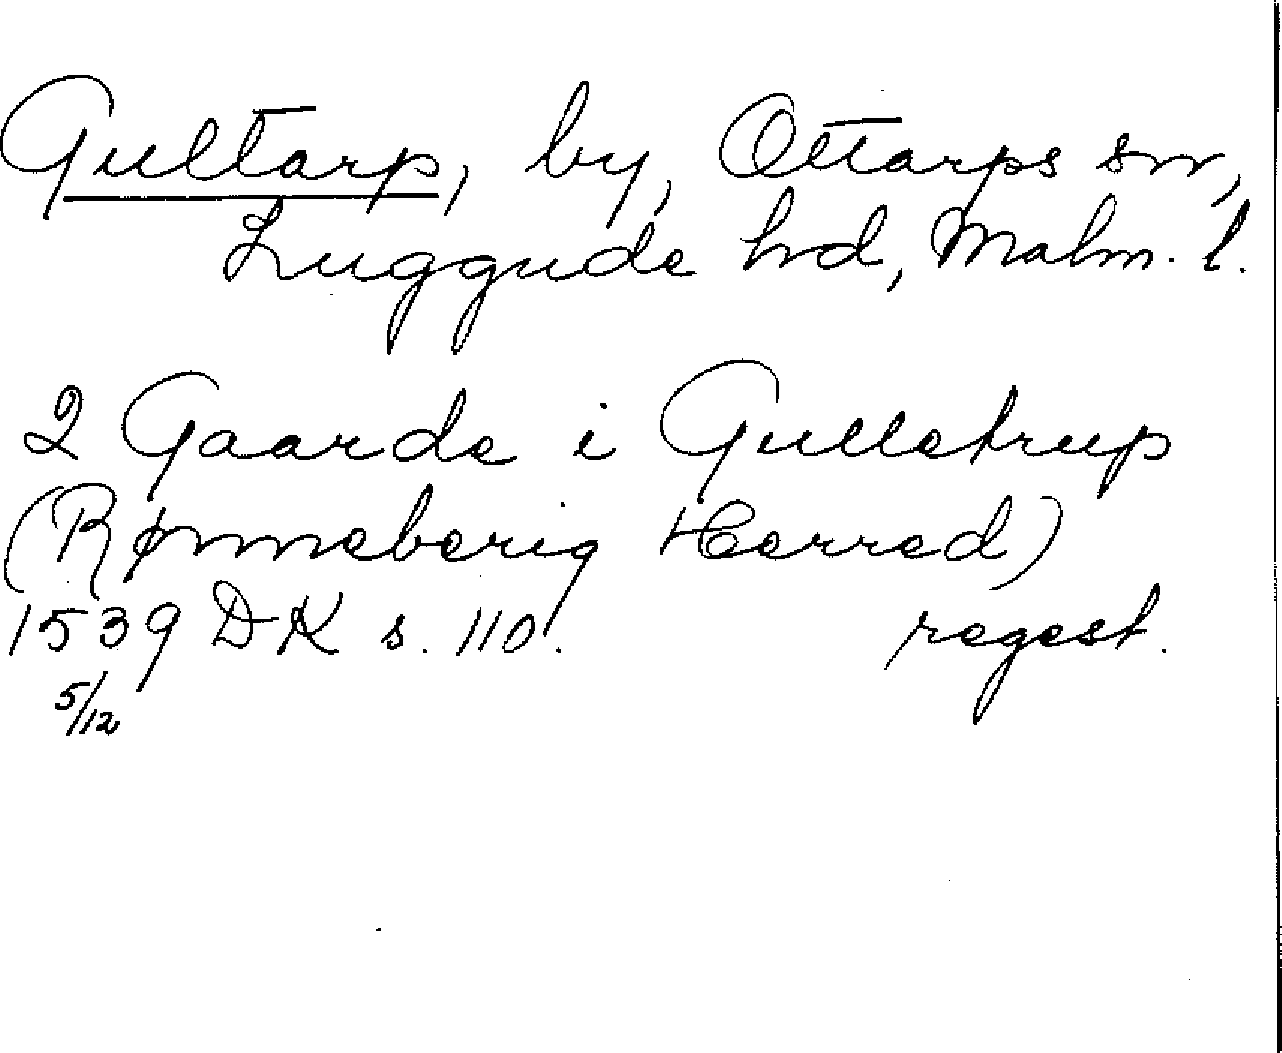 Gultarp, by, Ottarps sn,
Luggude hd, Malm. l.
2 Gaarde i Gulletrup
(Rønneberig Herred)
1539 DK s. 110. regest.
5/12